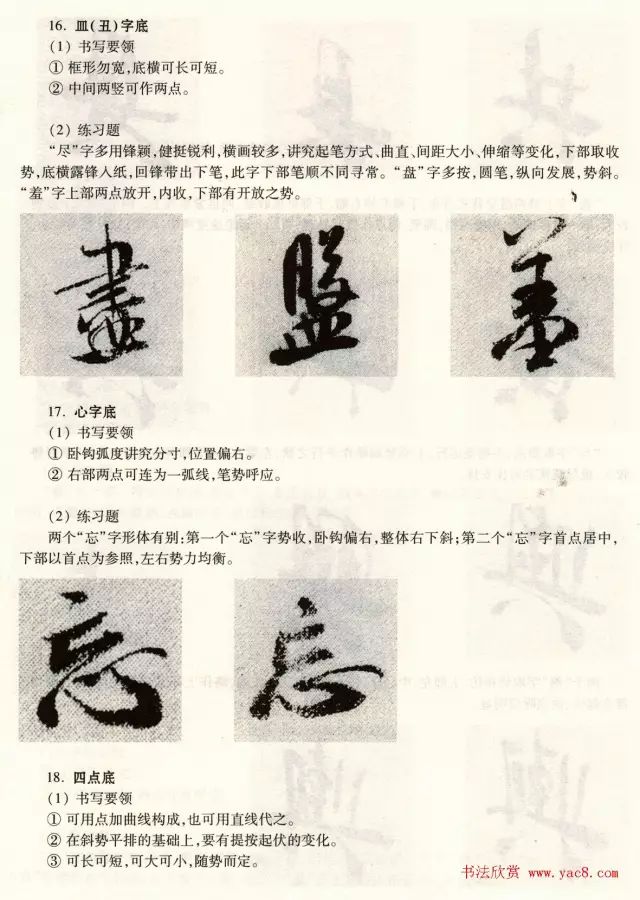 16. 皿(丑)字底
(1) 书写要领
① 框形勿宽,底横可长可短。
② 中间两竖可作两点。
(2) 练习题
“尽”字多用锋颖,健挺锐利,横画较多,讲究起笔方式、曲直、间距大小、伸缩等变化,下部取收
势,底横露锋入纸,回锋带出下笔,此字下部笔顺不同寻常。“盘”字多按,圆笔,纵向发展,势斜。
“羞”字上部两点放开,内收,下部有开放之势。
盡 盤 羞
17. 心字底
(1) 书写要领
① 卧钩弧度讲究分寸,位置偏右。
② 右部两点可连为一弧线,笔势呼应。
(2) 练习题
两个“忘”字形体有别:第一个“忘”字势收,卧钩偏右,整体右下斜;第二个“忘”字首点居中,
下部以首点为参照,左右势力均衡。
忘 忘
18. 四点底
(1) 书写要领
① 可用点加曲线构成,也可用直线代之。
② 在斜势平排的基础上,要有提按起伏的变化。
③ 可长可短,可大可小,随势而定。
书法欣赏 www.yac8.com